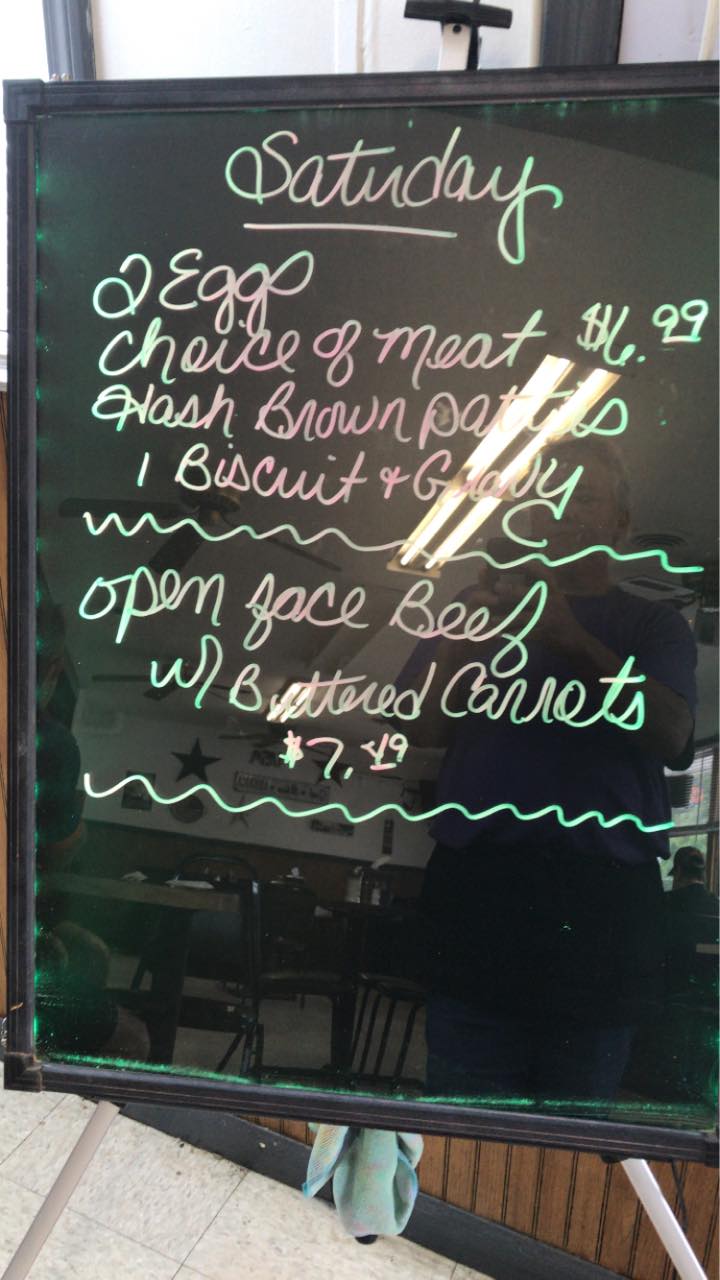 Saturday
2 Eggs
choice of meat $6.99
Hash Brown patties
1 Biscuit & Gravy
open face Beef
w/ Buttered Carrots
$7.49